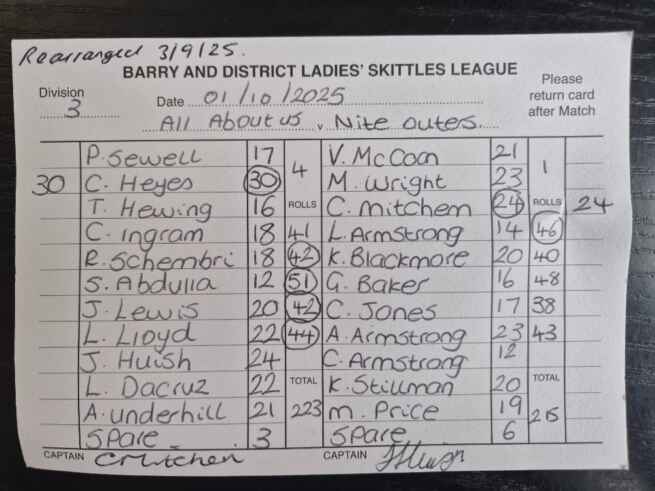 Rearranged 3/9/25.
BARRY AND DISTRICT LADIES' SKITTLES LEAGUE
Division 3
Date 01/10/2025
Please return card after Match
All About us v Nite outers.
P. Sewell 17 4 V. McCoan 21 1
30 C. Heyes 30 M. Wright 23
T. Hewing 16 ROLLS C. Mitchem 24 ROLLS 24
C. Ingram 18 41 L. Armstrong 14 46
R. Schembri 18 42 K. Blackmore 20 40
S. Abdulla 12 51 G. Baker 16 48
J. Lewis 20 42 C. Jones 17 38
L. Lloyd 22 44 A. Armstrong 23 43
J. Huish 24 C. Armstrong 12
L. Dacruz 22 TOTAL K. Stillman 20 TOTAL
A. Underhill 21 223 M. Price 19 215
Spare 3 Spare 6
CAPTAIN C Mitchem CAPTAIN